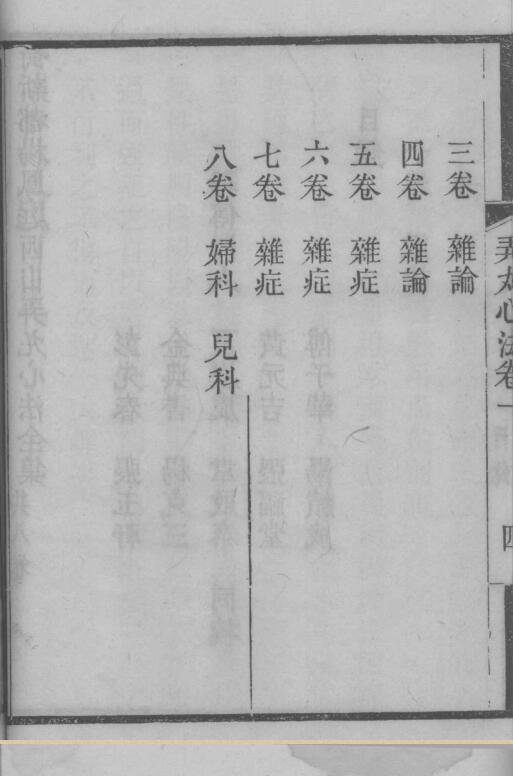 弄丸心法卷一
四
三卷 雜論
四卷 雜論
五卷 雜症
六卷 雜症
七卷 雜症
八卷 婦科 兒科